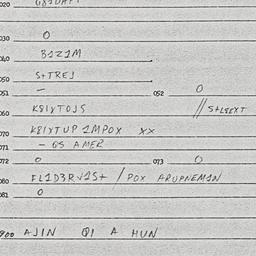 020
030 0
040 B1Z1M
050 S+TREJ
051 - 052 0
060 K81YTOJS // S+L8EXT
070 K81YTUP 1MPOX XX
071 - GS AMER
072 0 073 0
080 FL1D3RV1S+ / POX ARUPNEM1N
081 0
900 AJIN Q1 A HUN